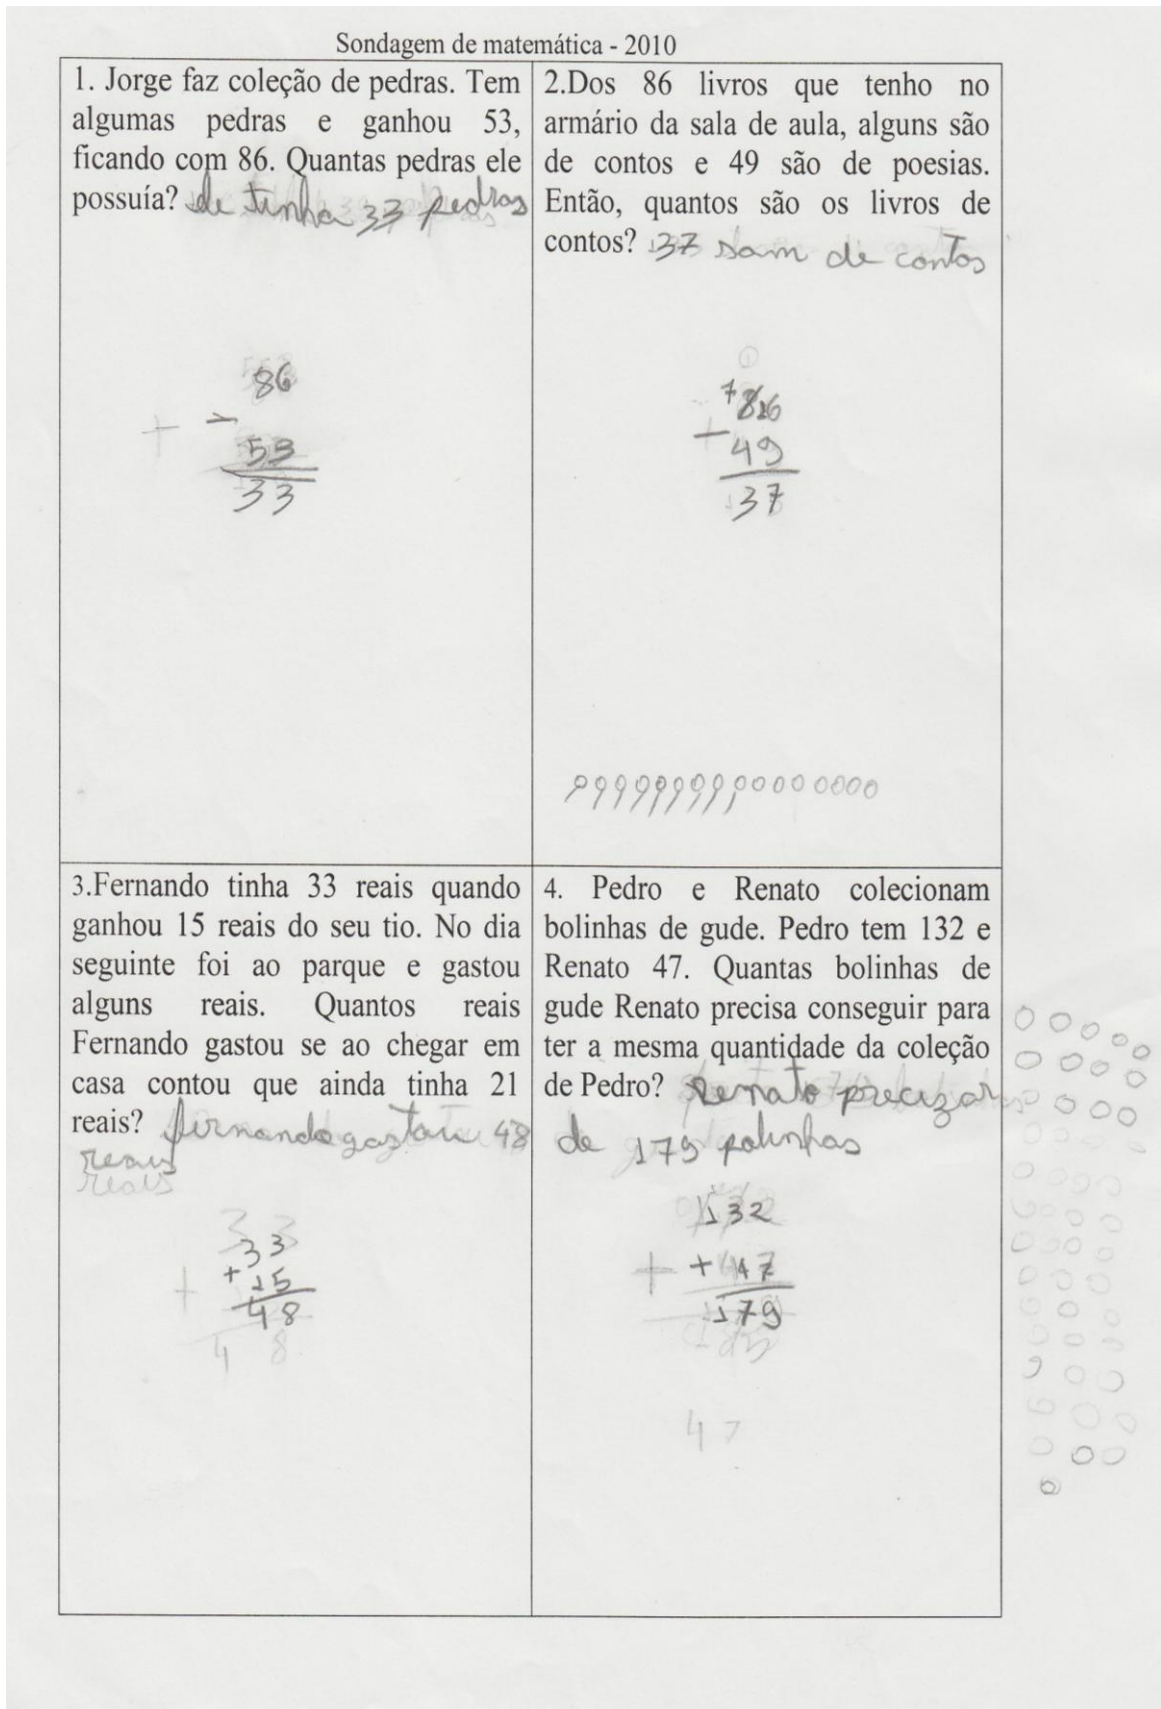 Sondagem de matemática - 2010
1. Jorge faz coleção de pedras. Tem
algumas pedras e ganhou 53,
ficando com 86. Quantas pedras ele
possuía? ele tinha 33 pedras
86
-
+
53
33
2.Dos 86 livros que tenho no
armário da sala de aula, alguns são
de contos e 49 são de poesias.
Então, quantos são os livros de
contos? 37 sam de contos
1
7 8 16
-
49
37
3.Fernando tinha 33 reais quando
ganhou 15 reais do seu tio. No dia
seguinte foi ao parque e gastou
alguns reais. Quantos reais
Fernando gastou se ao chegar em
casa contou que ainda tinha 21
reais? fernando gastou 48
reais
reais
33
33
+ 15
+
48
4 8
4. Pedro e Renato colecionam
bolinhas de gude. Pedro tem 132 e
Renato 47. Quantas bolinhas de
gude Renato precisa conseguir para
ter a mesma quantidade da coleção
de Pedro? Renato precizar
de 179 polinhas
132
+ + 47
179
47